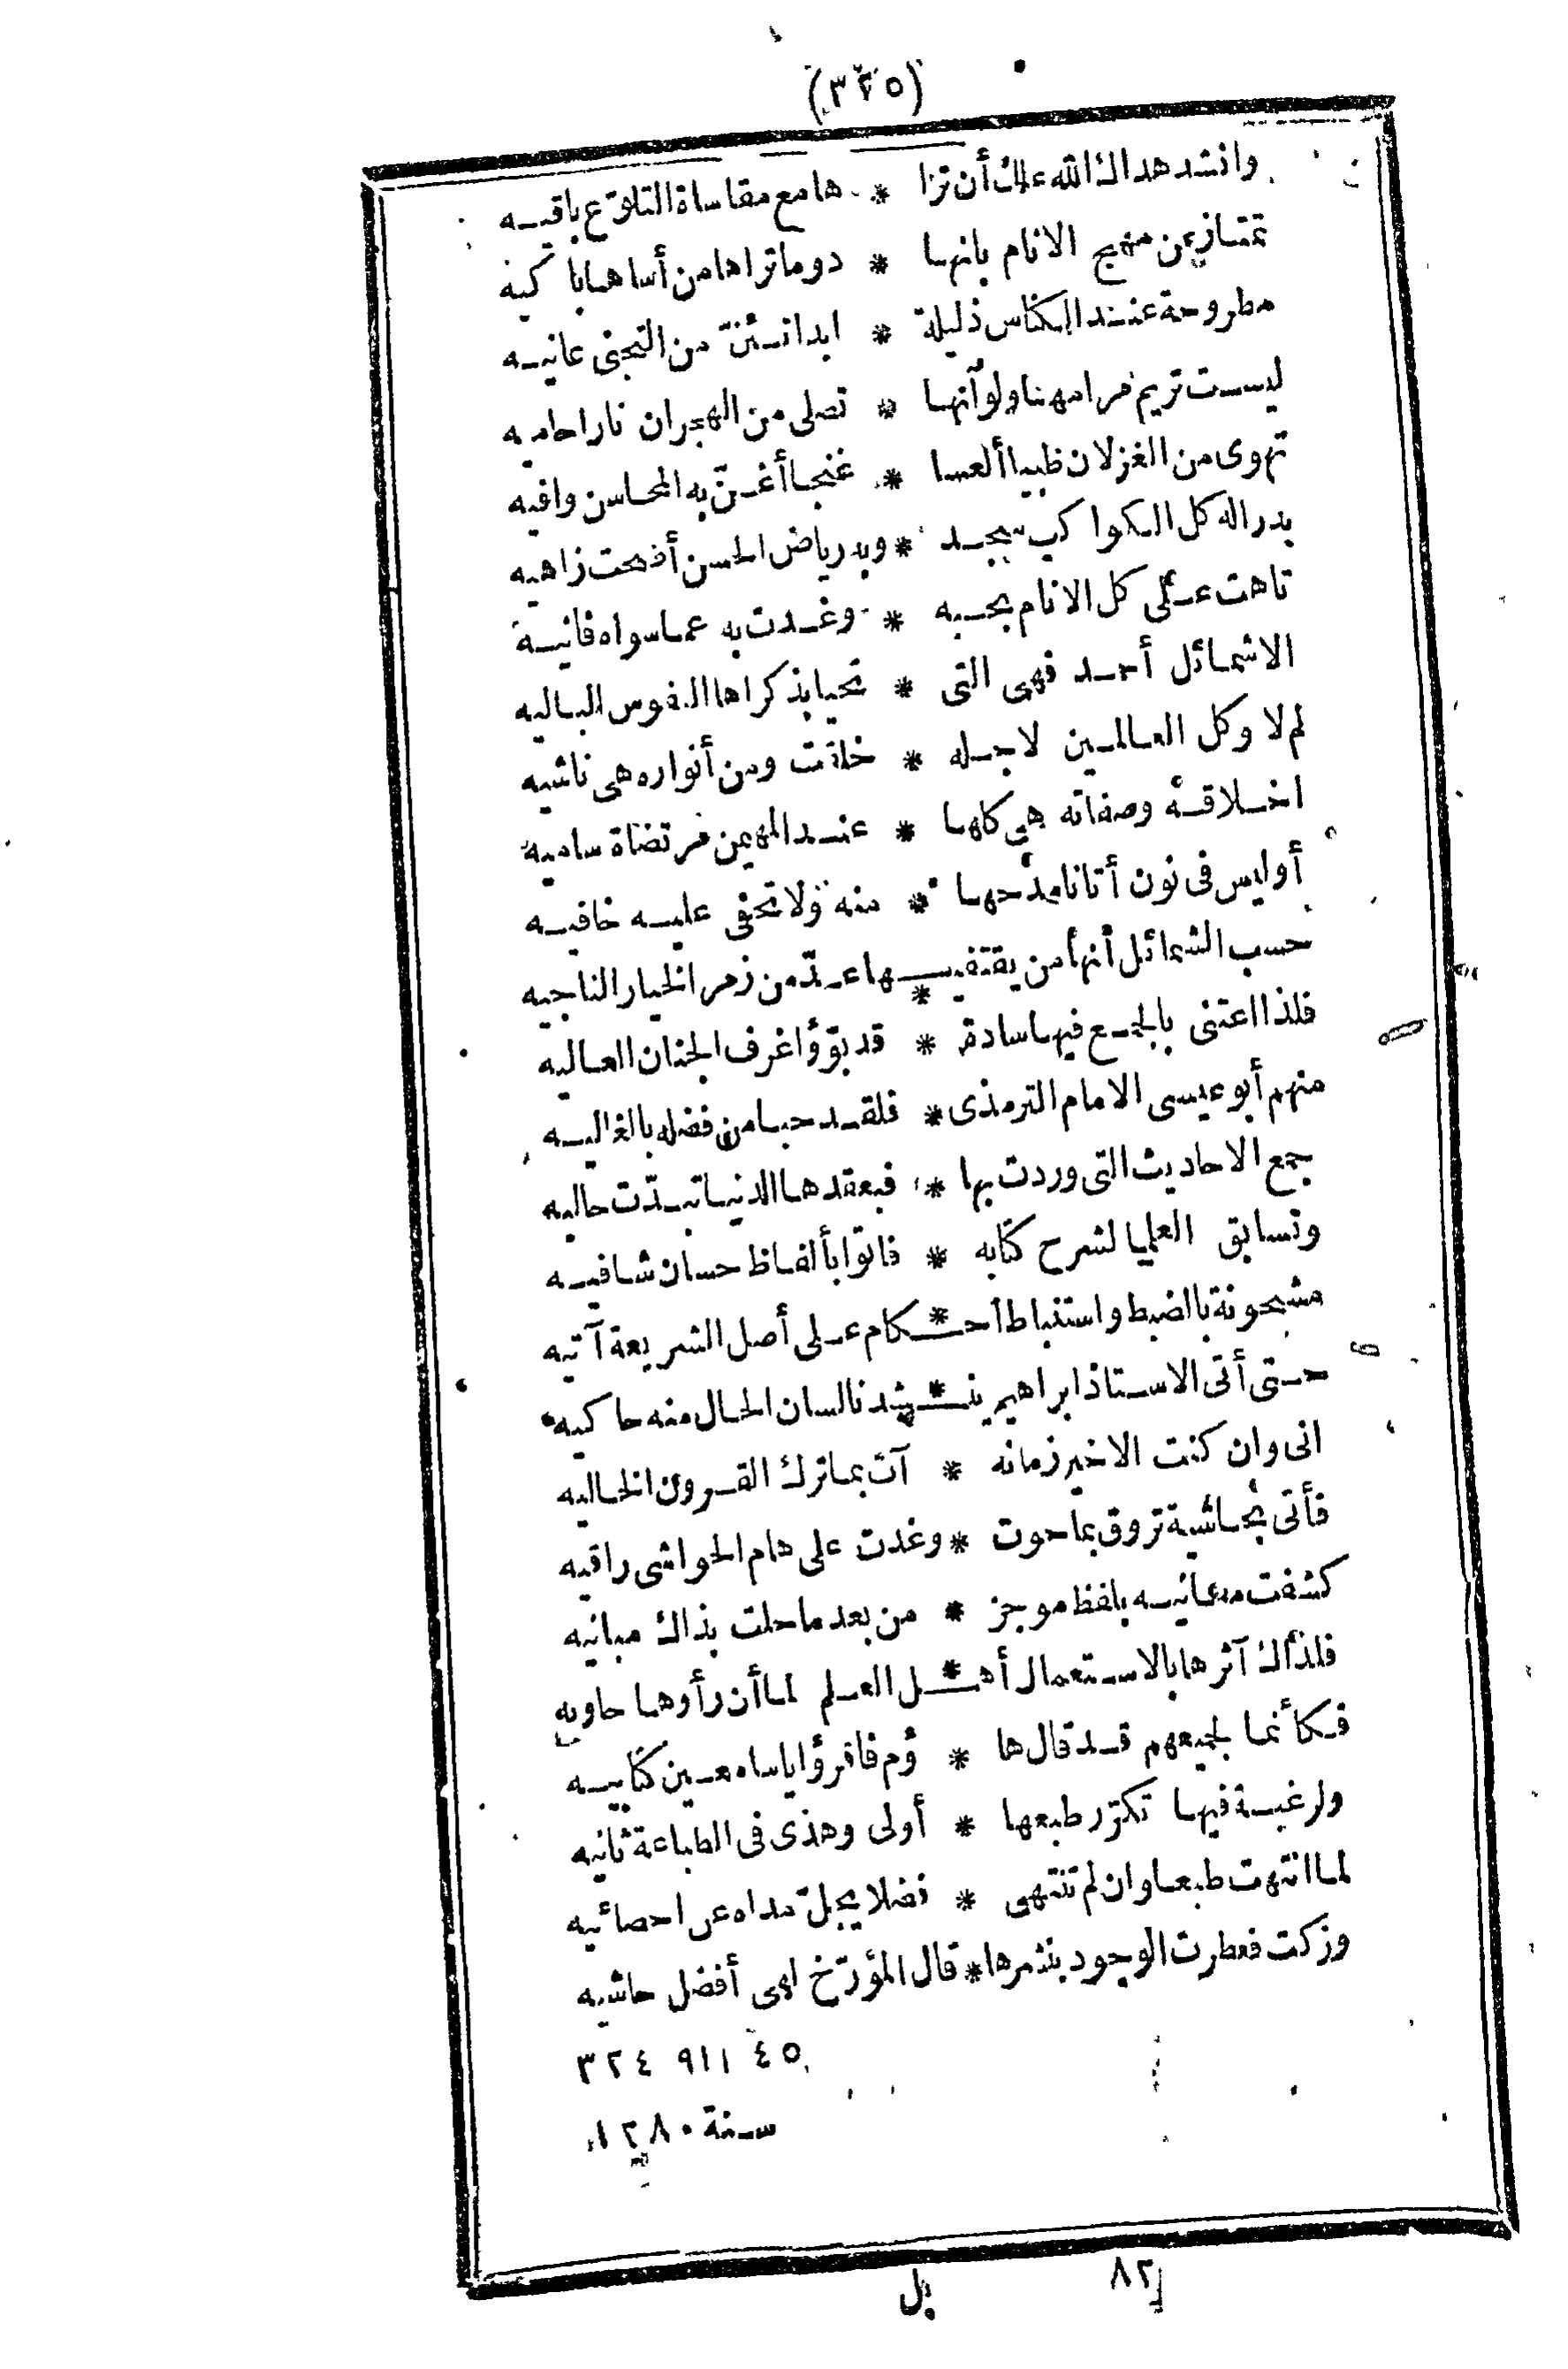 (٣٢٥)
وانشد هداك الله علك أن ترا * ها مع مقاساة التلوّع باقيـه
تمتاز عن منهج الانام بانها * دوما تراها من أساها باكيه
مطروحة عند الكناس ذليلة * ابدا تـئنّ من التجنى عانيـه
ليسـت تريم مرامه نا ولو أنها * تصلى من الهجران نارا حاميه
تهوى من الغزلان ظبيا ألعسا * غنجا أغـنّ به المحاسن وافيه
بدر اله كل الكواكب سجـد * وبه رياض الحسن أضحت زاهيه
تاهت عـلى كل الانام بحـبه * وغـدت به عما سواه فانيـه
الا شمائل أحمـد فهى التى * تحيا بذكراها النفوس الباليه
لم لا وكل العالمـين لاجـله * خلقت ومن أنواره هى ناشيه
اخـلاقـه وصفاته هى كلها * عنـد المهيمن مرتضاة ساميه
أوليس فى نون أتانا مدحها * منه ولا تخفى عليـه خافيـه
حسب الشمائل أنها من يقتفيــ * ـها عـدّ من زمر الخيار الناجيه
فلذا اعتنى بالجمـع فيها سادة * قد بوّؤا غرف الجنان العاليه
منهم أبو عيسى الامام الترمذى * فلقـد حبا من فضله بالغاليـه
جمع الاحاديث التى وردت بها * فبعقدها الدنيا تبـدّت حاليه
وتسابق العلما لشرح كتابه * فاتوا بألفاظ حسان شافيـه
مشحونة بالضبط واستنباط أحــ * ـكام عـلى أصل الشريعة آتيه
حـتى أتى الاسـتاذ ابراهيم ينــ * ـشدنا لسان الحال منه حاكيه
انى وان كنت الاخير زمانه * آت بما ترك القـرون الخاليه
فأتى بحـاشية تروق بما حوت * وغدت على هام الحواشى راقيه
كشفت معانيـه بلفظ موجز * من بعد ما حلت بذاك مبانيه
فلذاك آثرها بالاسـتعمال أهــ * ـل العـلم لما أن رأوها حاويه
فـكأنما لجميعهم قـد قال ها * ؤم فاقرؤا ياسامعـين كتابيـه
ولرغبـة فيها تكرّر طبعها * أولى وهذى فى الطباعة ثانيه
لما انتهت طبعا وان لم تنتهى * فضلا يجلّ مداه عن احصائيه
وزكت فعطرت الوجود بنشرها * قال المؤرّخ لهى أفضل حاشيه
٤٥ ٩١١ ٣٢٤
سـنة ١٢٨٠
٨٢ ل